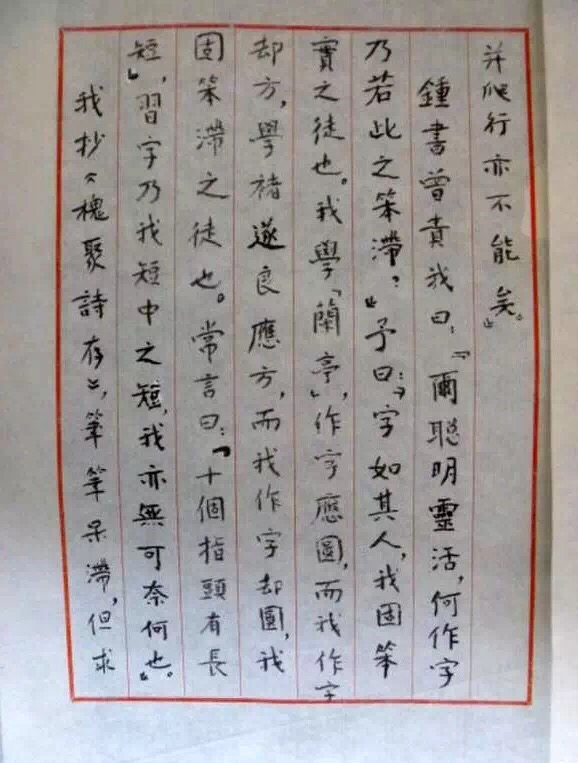 并爬行亦不能矣。」
鍾書曾責我曰：「爾聰明靈活，何作字
乃若此之笨滯？」予曰：「字如其人，我固笨
實之徒也。我學「蘭亭」，作字應圓，而我作字
却方，學褚遂良應方，而我作字却圓，我
固笨滯之徒也。常言曰：「十個指頭有長
短」，習字乃我短中之短，我亦無可奈何也。」
我抄《槐聚詩存》，筆筆呆滯，但求